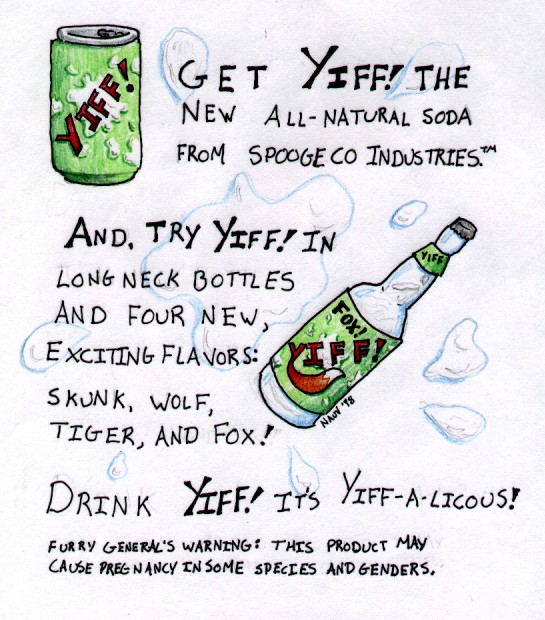 YIFF!
GET YIFF! THE
NEW ALL-NATURAL SODA
FROM SPOOGECO INDUSTRIES.™
AND, TRY YIFF! IN
LONG NECK BOTTLES
AND FOUR NEW,
EXCITING FLAVORS:
SKUNK, WOLF,
TIGER, AND FOX!
YIFF
FOX!
YIFF!
NAUV '98
DRINK YIFF! IT'S YIFF-A-LICOUS!
FURRY GENERAL'S WARNING: THIS PRODUCT MAY
CAUSE PREGNANCY IN SOME SPECIES AND GENDERS.